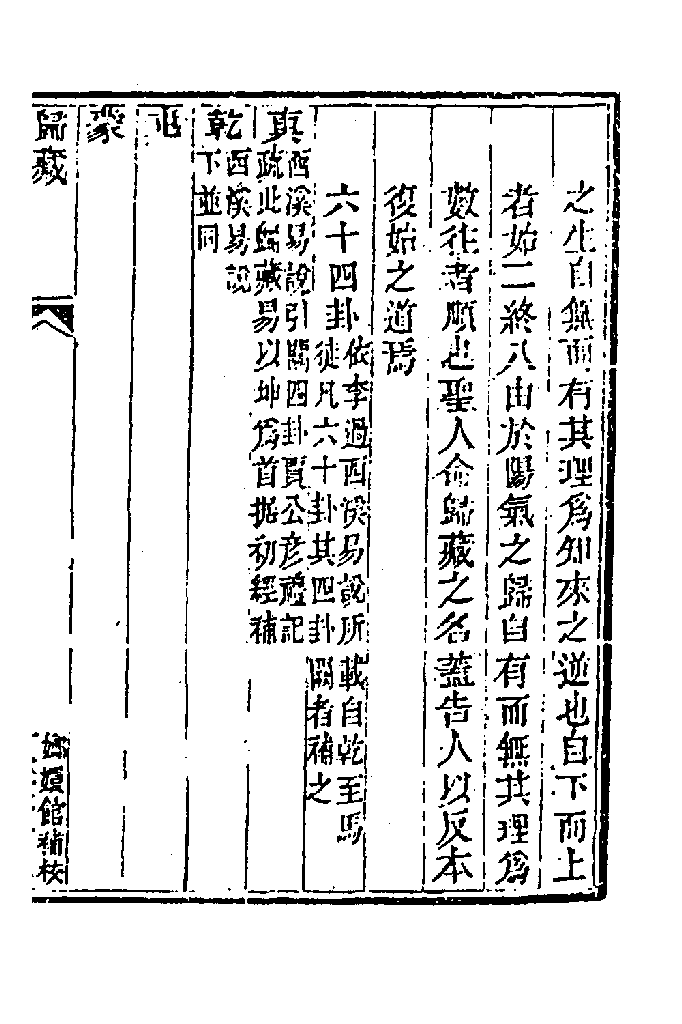 之生自無而有其理爲知來之逆也自下而上
者始二終八由於陽氣之歸自有而無其理爲
數往者順也聖人命歸藏之名蓋告人以反本
復始之道焉
六十四卦
依李過西溪易說所載自乾至馬
徒凡六十卦其四卦闕者補之
西溪易說引闕四卦賈公彥禮記
疏此歸藏易以坤爲首據初經補
乾
西溪易說
下並同
屯
蒙
歸藏
八
嫏嬛館補校